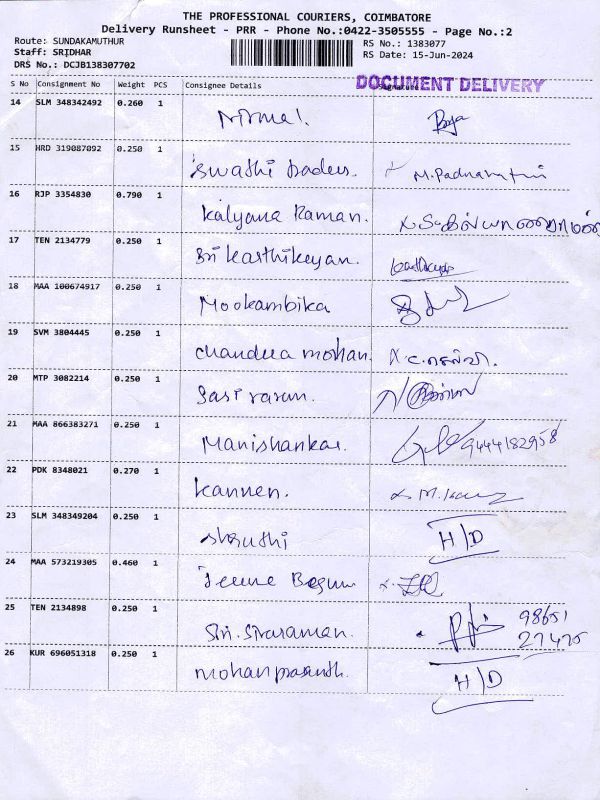 THE PROFESSIONAL COURIERS, COIMBATORE
Delivery Runsheet - PRR - Phone No.:0422-3505555 - Page No.:2
Route: SUNDAKAMUTHUR RS No.: 1383077
Staff: SRIDHAR RS Date: 15-Jun-2024
DRS No.: DCJB138307702
DOCUMENT DELIVERY
S No Consignment No Weight PCS Consignee Details Signature
14 SLM 348342492 0.260 1 Nirmal.
15 HRD 319087092 0.250 1 Swathi traders. M. Padmavathi
16 RJP 3354830 0.790 1 Kalyana Raman.
17 TEN 2134779 0.250 1 Sri Karthikeyan.
18 MAA 100674917 0.250 1 Mookambika
19 SVM 3804445 0.250 1 Chandra mohan.
20 MTP 3082214 0.250 1
21 MAA 866383271 0.250 1 Manishankar. 9444182958
22 PDK 8348021 0.270 1 Kannen.
23 SLM 348349204 0.250 1 Shruthi H/D
24 MAA 573219305 0.460 1 Begum
25 TEN 2134898 0.250 1 Sri. Sivaraman. 98651
27475
26 KUR 696051318 0.250 1 Mohan prasanth. H/D